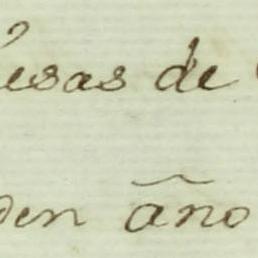 esas de
den año